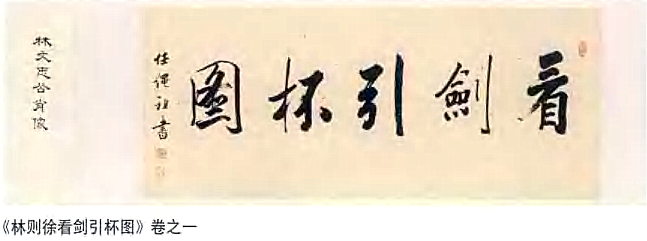 看劍引杯圖
任繩祖書
林文忠公肖像
《林则徐看剑引杯图》卷之一